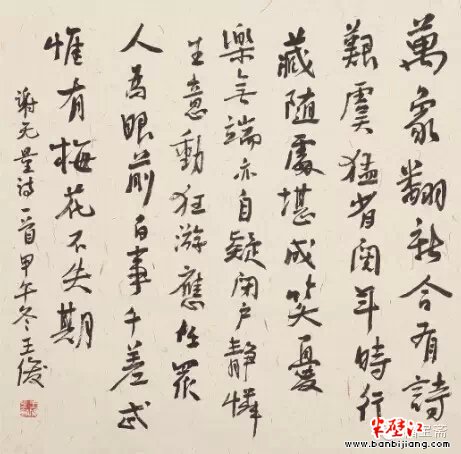 萬象翻新合有詩
艱虞猛省閱年時行
藏隨處堪成笑憂
樂無端亦自疑閉戶靜憐
生意動狂游應任眾
人為眼前百事千差忒
惟有梅花不失期
謝无量詩一首甲午冬王俊
半壁江
www.banbijiang.com